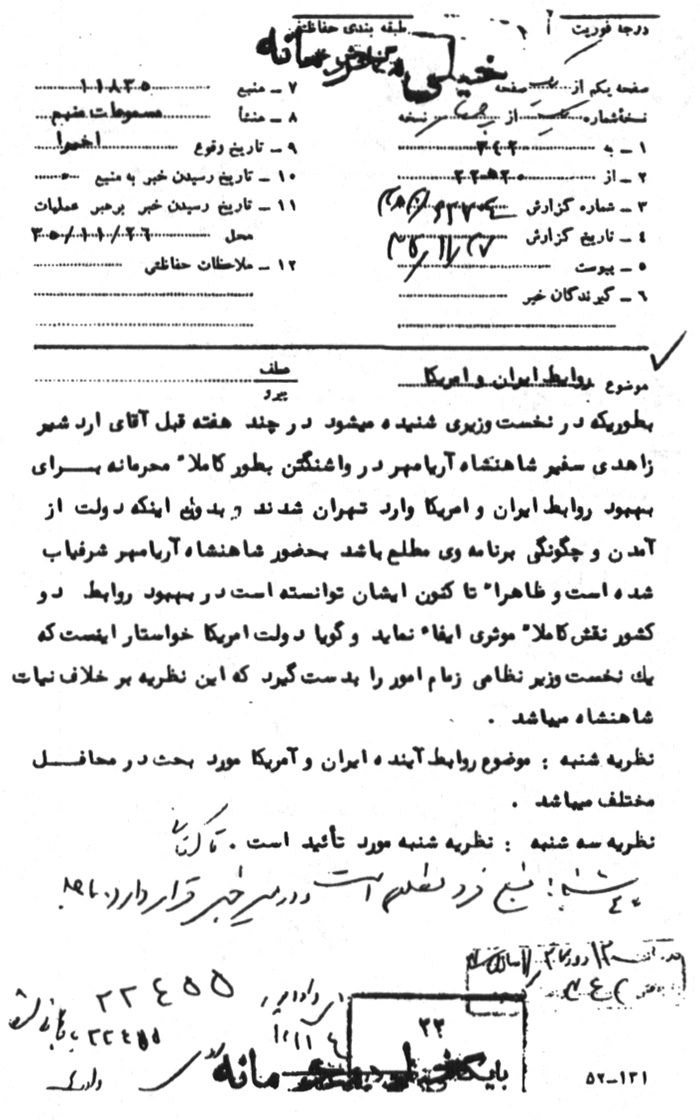 درجه فوریت
طبقه بندی حفاظتی
خیلی محرمانه
صفحه یکم از صفحه
نسخه‌شماره از نسخه
۱ – به ۳۴۲
۲ – از
۳ – شماره گزارش
۴ – تاریخ گزارش
۵ – پیوست
۶ – گیرندگان خبر
۷ – منبع ۱۱۸۳۵
۸ – منشأ مسموعات منبع
۹ – تاریخ وقوع اخیرا
۱۰ – تاریخ رسیدن خبر به منبع
۱۱ – تاریخ رسیدن خبر برهبر عملیات
محل ۳۵/۱۱/۲۶
۱۲ – ملاحظات حفاظتی
موضوع روابط ایران و امریکا
عطف
پیرو
بطوریکه در نخست وزیری شنیده میشود در چند هفته قبل آقای اردشیر
زاهدی سفیر شاهنشاه آریامهر در واشنگتن بطور کاملا" محرمانه برای
بهبود روابط ایران و امریکا وارد تهران شدند و بدون اینکه دولت از
آمدن و چگونگی برنامه وی مطلع باشد بحضور شاهنشاه آریامهر شرفیاب
شده است و ظاهرا" تا کنون ایشان توانسته است در بهبود روابط دو
کشور نقش کاملا" موثری ایفا" نماید و گویا دولت امریکا خواستار اینست که
یك نخست وزیر نظامی زمام امور را بدست گیرد که این نظریه بر خلاف نیات
شاهنشاه میباشد .
نظریه شنبه : موضوع روابط آینده ایران و آمریکا مورد بحث در محافل
مختلف میباشد .
نظریه سه شنبه : نظریه شنبه مورد تأئید است .
قرار دارد.
۲۲۴۵۵
۲۲۴۵۵
۳۳
۵۲–۱۳۱